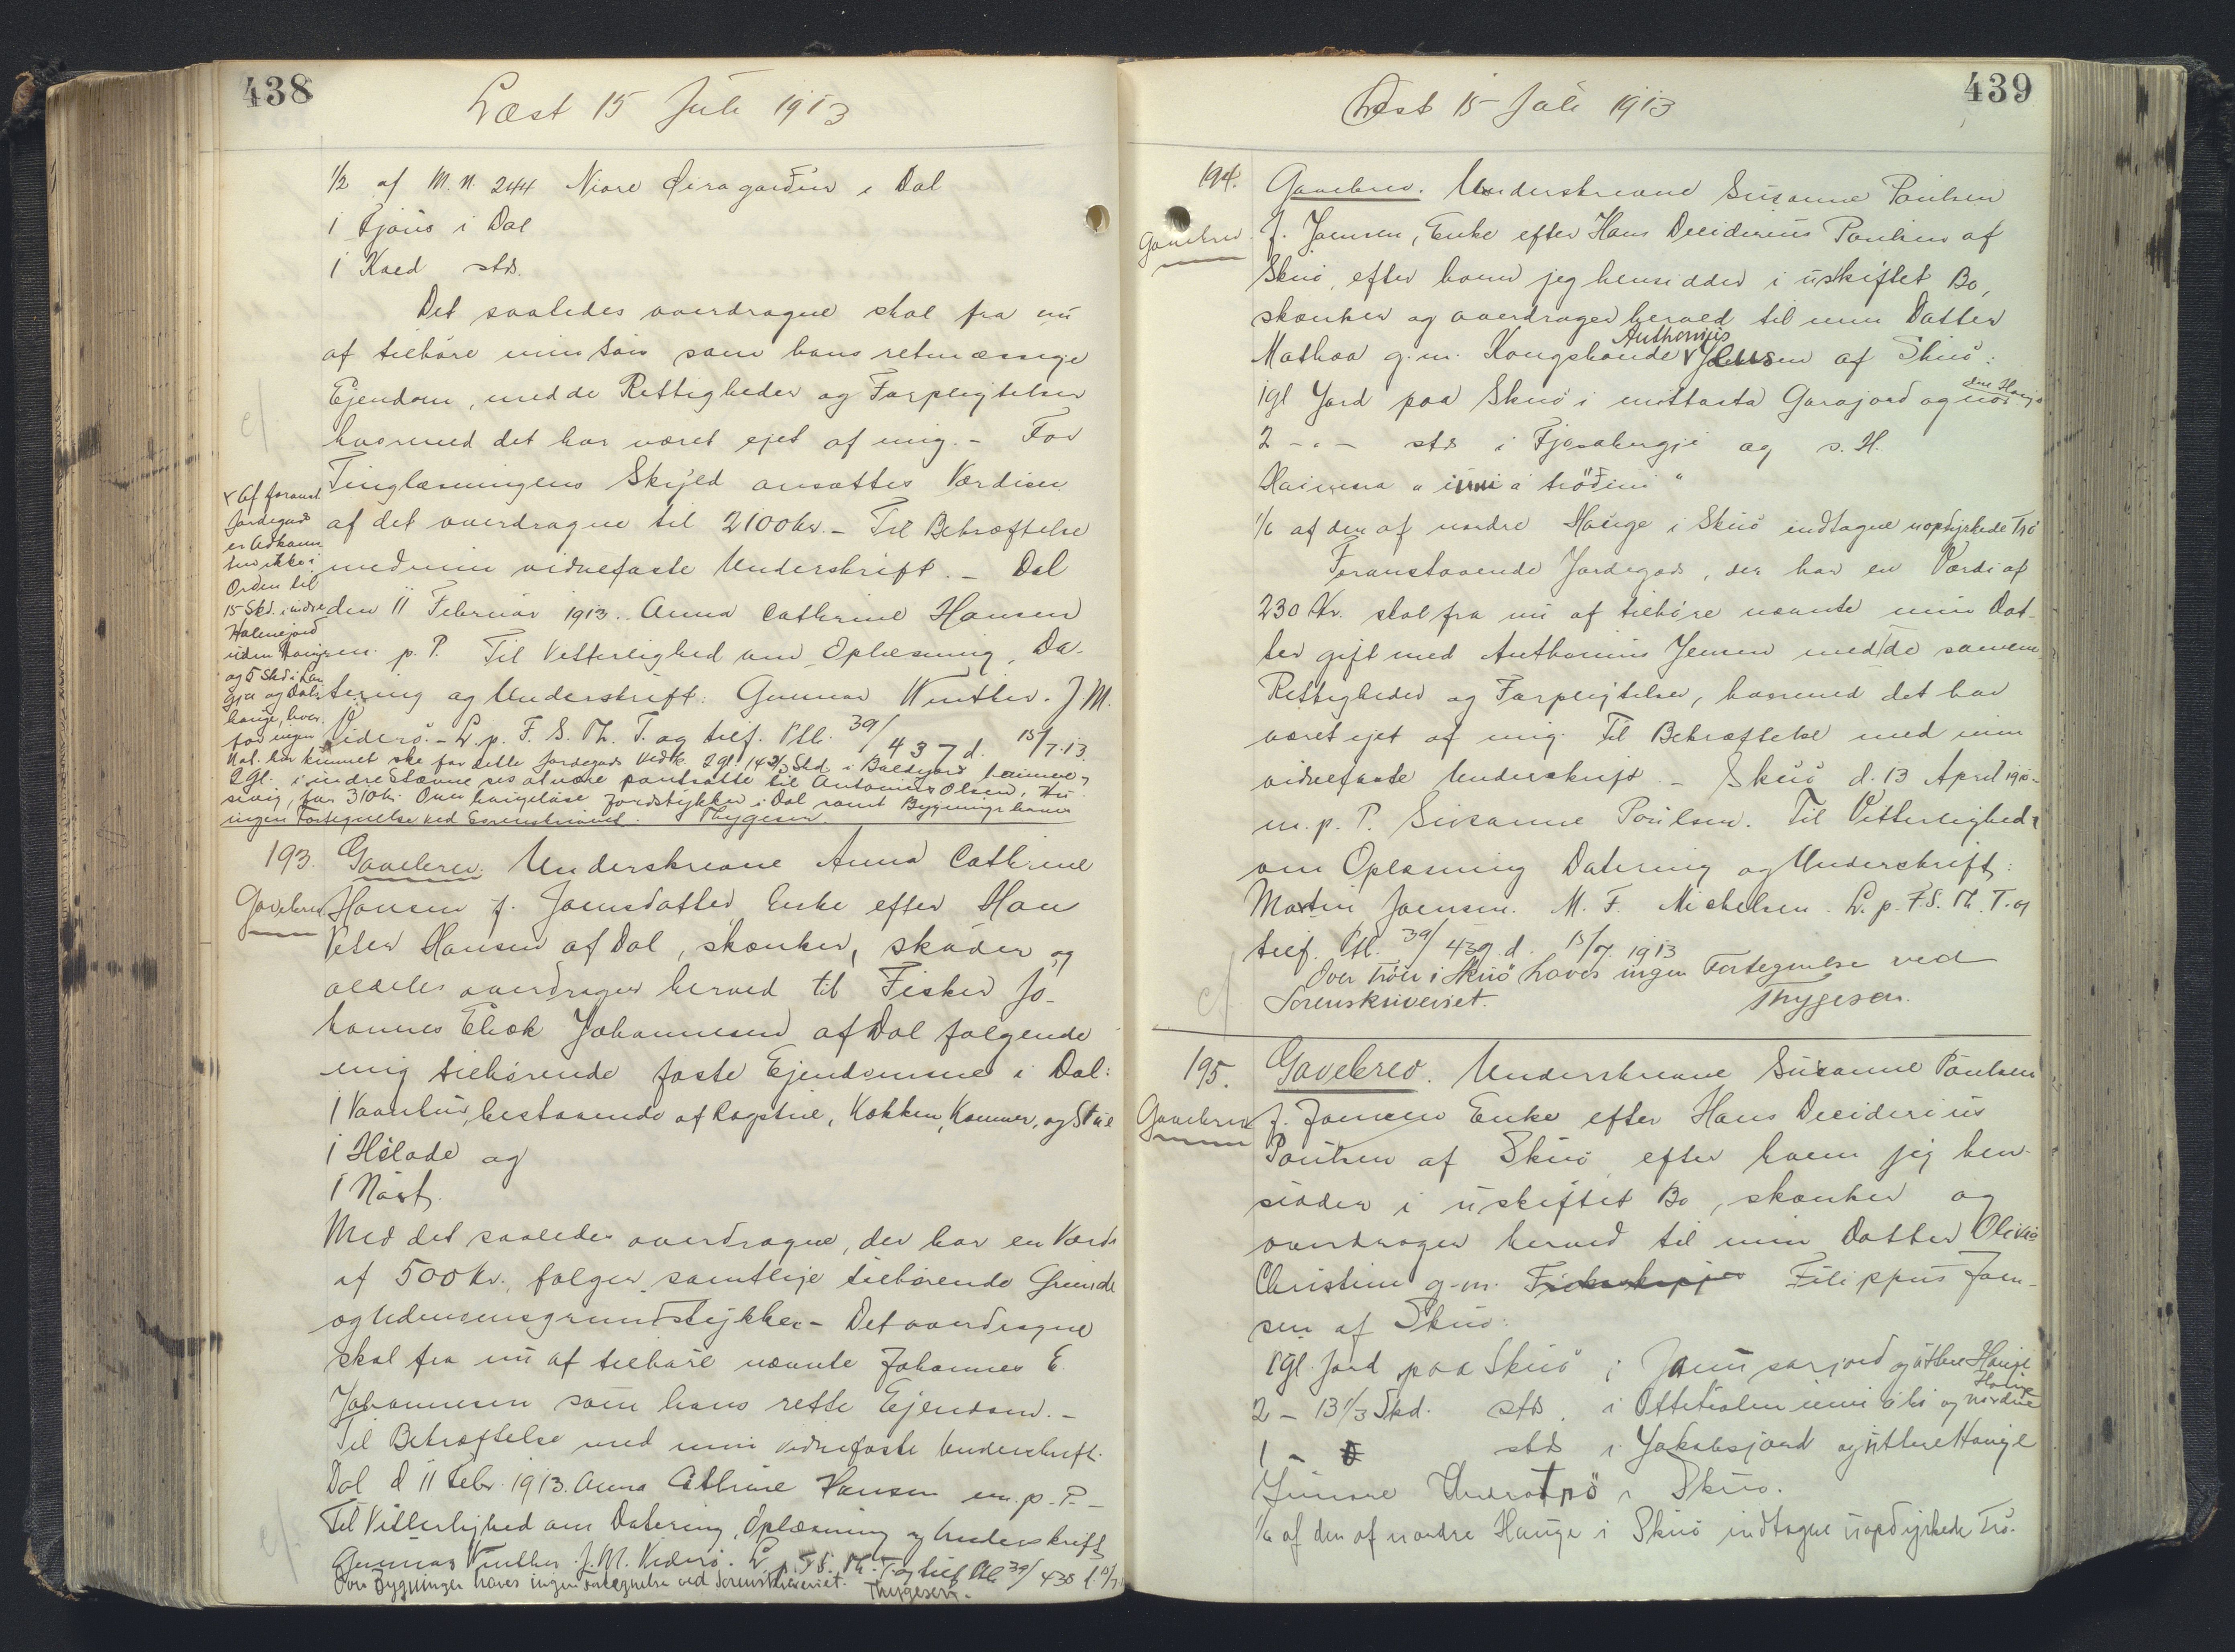 438
Læst 15 Juli 1913
1/2 af M. N. 244 Niore Øiragardur i Dal
1 Fjøus i Dal
1 Kaed stds.
Det saaledes overdragne skal fra nu
af tilhøre min Søn som hans retmæssige
Ejendom, med de Rettigheder og Forpligtelser
hvormed det har været ejet af mig. - For
Tinglæsningens Skyld ansættes Værdien
af det overdragne til 2100 Kr. - Til Bekræftelse
med min vidnefaste Underskrift. - Dal
den 11 Februar 1913. Anna Cathrine Hansen
m. p. P. Til Vitterlighed om Oplæsning, Da-
tering og Underskrift: Gunnar Winther. J. M.
Viderø. - L. p. F. S. Th. T. og tilf. Ptl. 39/437 d. 15/7.13.
x Af foranst.
Jordegods
er Adkom-
sten ikke i
Orden til
15 Skd. i indre
Halmejord
uden Haugen
og 5 Skd i Lan
gja og Dals
hauge, hvor-
for ingen
Not. har kunnet ske for dette Jordegods Vedk. 2 gl. 14 2/3 Skd. i Baldgard
2 gl. i indre Stavne ses at være pantsatte til Antonius Olsen, Hu-
savig, for 310 Kr. Over haugeløse Jordstykker i Dal samt Bygninger haves
ingen Fortegnelse ved Sorenskriveriet. Thygesen.
193. Gavebrev. Underskrevne Anna Cathrine
Gavebrev. Hansen f. Joensdatter, Enke efter Han
Peter Hansen af Dal, skænker, skøder og
aldeles overdrager herved til Fisker Jo-
hannes Elisk Johannesen af Dal følgende
mig tilhørende faste Ejendomme i Dal:
1 Vaanhus, bestaaende af Rogstue, Køkken, Kammer, og Stue
1 Hølade og
1 Nøst
Med det saaledes overdragne, der har en Værdi
af 500 Kr., følger samtlige tilhørende Grunde
og Udenomsgrundstykker - Det overdragne
skal fra nu af tilhøre nævnte Johannes E.
Johannesen som hans rette Ejendom. -
Til Bekræftelse med min vidnefaste Underskrift.
Dal d 11 Febr. 1913. Anna Cathrine Hansen m. p. P. -
Til Vitterlighed om Datering, Oplæsning og Underskrift
Gunnar Winther. J. M. Viderø. L. p. F. S. Th. T. og tilf. Ptl. 39/438 d. 15/7
Over Bygninger haves ingen Fortegnelse ved Sorenskriveriet. Thygesen.
439
Læst 15 Juli 1913
194. Gavebrev. Underskrevne Susanne Poulsen
Gavebrev. f. Joensen, Enke efter Hans Deciderius Poulsen af
Skuø, efter hvem jeg hensidder i uskiftet Bo,
skænker og overdrager herved til min Datter
Mathea g. m. Kongsbonde Anthonius Jensen af Skuø:
1 gl Jord paa Skuø i mittasta Garajord og nordre Hauge
2 - " - stds i Fjosabergji og s. H.
Haimara "inni á trøðini"
1/6 af den af nordre Hauge i Skuø indtagne uopdyrkede Trø
Foranstaaende Jordegods, der har en Værdi af
230 Kr. skal fra nu af tilhøre nævnte min Dat-
ter gift med Anthonius Jensen med de samme
Rettigheder og Forpligtelser, hvormed det har
været ejet af mig. Til Bekræftelse med min
vidnefaste Underskrift. - Skuø d. 13 April 1910 -
m. p. P. Susanne Poulsen. Til Vitterlighed
om Oplæsning Datering og Underskrift:
Martin Joensen. M. F. Michelsen. L. p. F. S. Th. T. og
tilf. Ptl. 39/439 d. 15/7 1913
Over Trøer i Skuø haves ingen Fortegnelse ved
Sorenskriveriet. Thygesen.
195. Gavebrev. Underskrevne Susanne Poulsen
Gavebrev f. Joensen Enke efter Hans Deciderius
Poulsen af Skuø efter hvem jeg hen-
sidder i uskiftet Bo, skænker og
overdrager herved til min Datter Olivia
Christine g. m. Filippus Joen-
sen af Skuø:
1 gl. Jord paa Skuø i Jannusarjord og uttere Hauge
2 - 13 1/3 Skd. stds. i Ottetialen inni á bø og nordre Hauge
1 - stds i Jakobsjord og uttere Hauge
Trø i Skuø.
1/6 af den af nordre Hauge i Skuø indtagne uopdyrkede Trø.